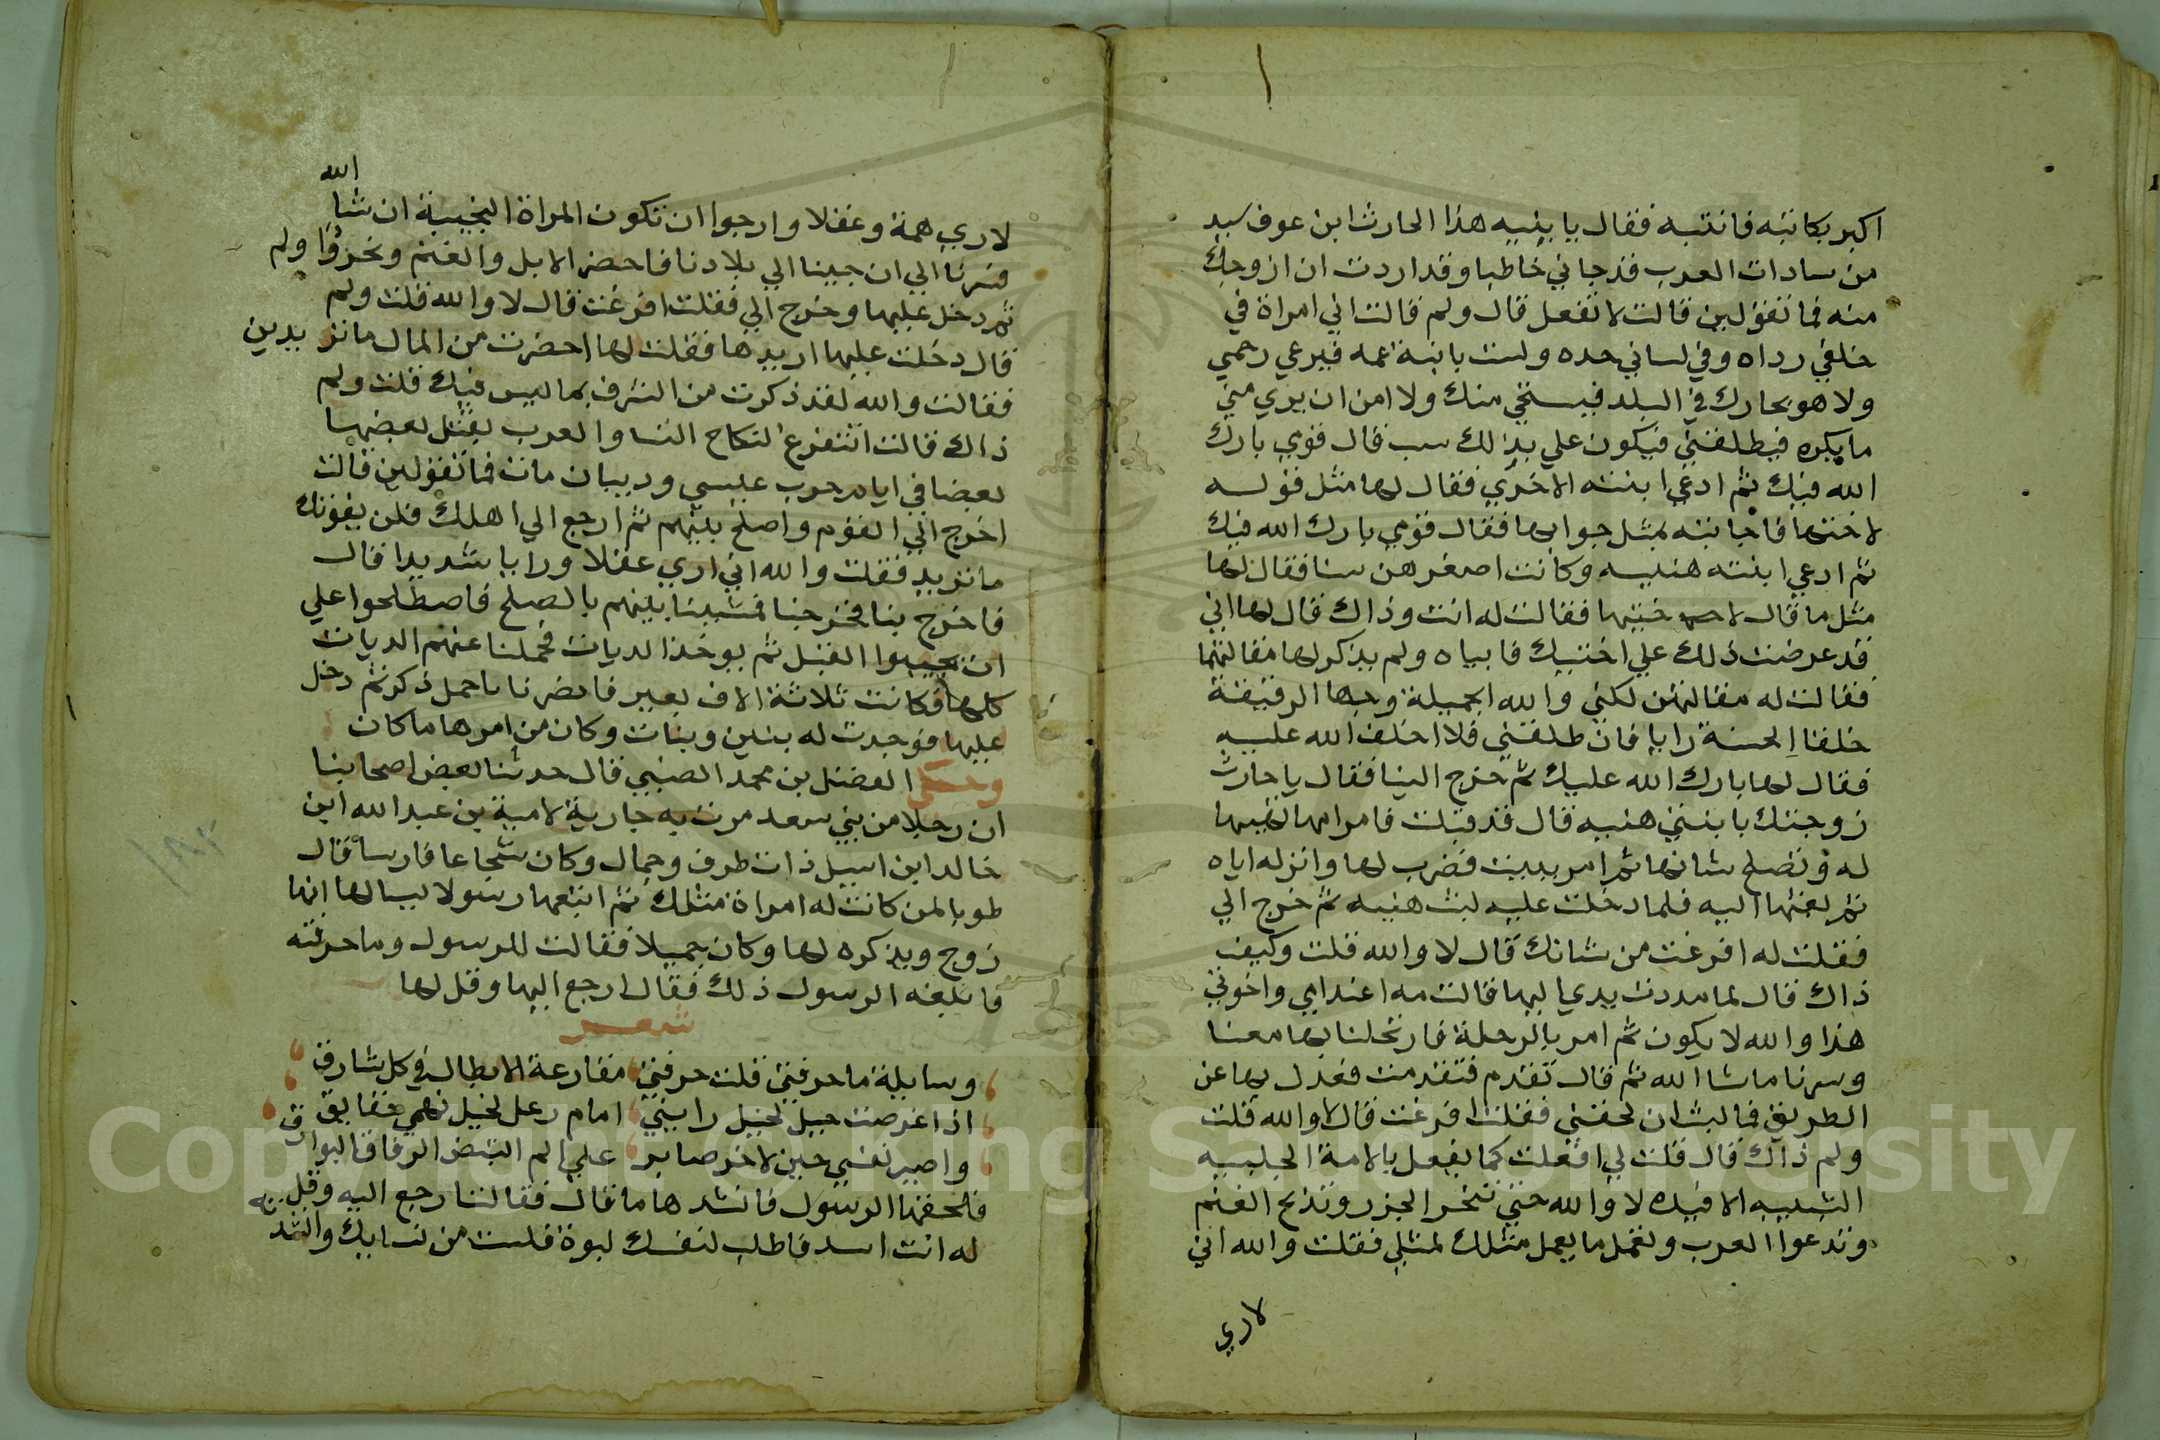 اكبر بكانته فانتبه فقال يا بنيه هذا الحارث ابن عوف سيد
من سادات العرب قد جاني خاطبا وقد اردت ان ازوجك
منه فما تقولين قالت لا تفعل قال ولم قالت اني امراة في
خلقي رداه وفي لساني حده ولست بابنة عمه فيرعي رحمي
ولا هو بجارك في البلد فيستحي منك ولا امن ان يري مني
ما يكره فيطلقني فيكون علي بذالك سب قال قومي بارك
الله فيك ثم ادعي ابنته الاخري فقال لها مثل قوله
لاختها فاجابته بمثل جوابها فقال قومي بارك الله فيك
ثم ادعي ابنته هنيسه وكانت اصغرهن سنا فقال لها
مثل ما قال لاختيها فقالت له انت وذاك قال لها اني
قد عرضت ذلك علي اختيك فابياه ولم يذكر لها مقالتهما
فقالت له مقالتهن لكني والله الجميلة وجها الرفيقة
خلقا الحسنة رايا فان طلقني فلا اخلف الله عليه
فقال لها بارك الله عليك ثم خرج الينا فقال يا حارث
زوجتك بابنتي هنيه قال قد قبلت فامر امها تهيها
له وتصلح شانها ثم امر ببيت فضرب لها وانزله اياه
ثم بعثها اليه فلما دخلت عليه لبث هنيه ثم خرج الي
فقلت له افرغت من شانك قال لا والله قلت وكيف
ذاك قال لما مددت يدي اليها قالت مه اعند ابي واخوتي
هذا والله لا يكون ثم امر بالرحلة فارتحلنا بها معنا
وسرنا ما شا الله ثم قال تقدم فتقدمت فعدل بها عن
الطريق فما لبث ان لحقني فقلت افرغت قال لا والله قلت
ولم ذاك قال قالت لي افعلت كما يفعل بالامة الجليبه
السبيه الاخيذه لا والله حتي تنحر الجزر وتذبح الغنم
وتدعوا العرب وتعمل ما يعمل مثلك لمثلي فقلت والله اني
لاري
الله
لاري همة وعقلا وارجوا ان تكون المراة النجيبة ان شا
فسرنا الي ان جينا الي بلادنا فاحضر الابل والغنم ونحر
ثم دخل عليها وخرج الي فقلت افرغت قال لا والله قلت ولم
قال دخلت عليها اريدها فقلت لها احضرت من المال ما تريدين
فقالت والله لقد ذكرت من الشرف بما ليس فيك قلت ولم
ذاك قالت اتتفرغ لنكاح النسا والعرب يقتل بعضها
بعضا في ايام حرب عبسي وديبان فما تقولين قالت
اخرج الي القوم واصلح بينهم ثم ارجع الي اهلك فلن يفوتك
ما تريد فقلت والله اني اري عقلا ورايا شديدا قال
فاخرج بنا فخرجنا فمشينا بينهم بالصلح فاصطلحوا علي
ان يحسبوا القتل ثم يوخذ الديات فحملنا عنهم الديات
كلها فكانت ثلاثة الاف بعير فانصرنا باجمل ذكر ثم دخل
عليها فوجدت له بنين وبنات وكان من امرها ما كان
وحكي الفضل بن محمد الضبي قال حدثنا بعض اصحابنا
ان رجلا من بني سعد مرت به جارية لامية بن عبد الله ابن
خالد ابن اسيل ذات ظرف وجمال وكان شجاعا فارسا قال
طوبا لمن كانت له امراة مثلك ثم اتبعها رسولا يسالها الها
زوج ويذكره لها وكان جميلا فقالت للرسول وما حرفته
فابلغه الرسول ذلك فقال ارجع اليها وقل لها
شعر
وسايلة ما حرفتي قلت حرفتي مقارعة الابطال في كل شارق
اذا عرضت خيل لخيل رايتني امام رعل لخيل تحمي حقايق
واصبر نفسي حين لا خر صابر علي الم البيض الرقاق البوارق
فلحقها الرسول فانشدها ما قال فقالت ارجع اليه وقل
له انت اسد فاطلب لنفسك لبوة فلست من نسايك وانشدته